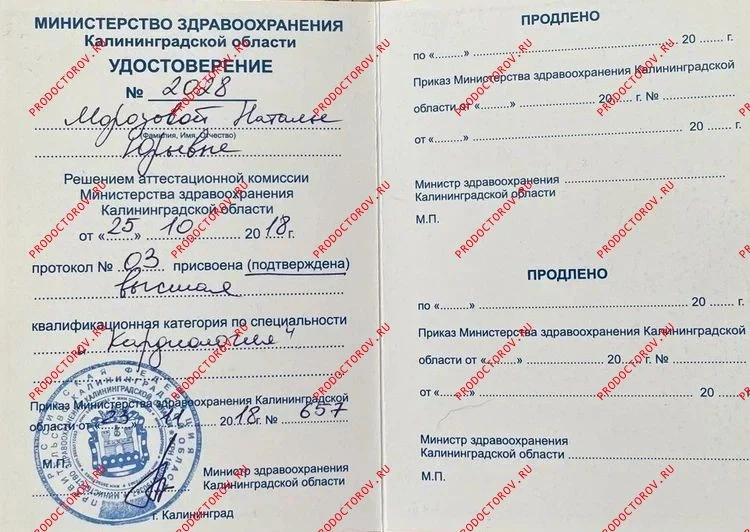 МИНИСТЕРСТВО ЗДРАВООХРАНЕНИЯ
Калининградской области
УДОСТОВЕРЕНИЕ
№ 2028
Морозовой Наталье
(Фамилия, Имя, Отчество)
Юрьевне
Решением аттестационной комиссии
Министерства здравоохранения
Калининградской области
от «25» 10 2018г.
протокол № 03 присвоена (подтверждена)
высшая
квалификационная категория по специальности
"Кардиология"
Приказ Министерства здравоохранения Калининградской
области от «23» 11 2018г. № 657
М.П.
Министр здравоохранения
Калининградской области
г. Калининград
ПРОДЛЕНО
по «.........» 20 ....... г.
Приказ Министерства здравоохранения Калининградской
области от «.........» 20...... г. №
от «.........» 20
Министр здравоохранения
Калининградской области
М.П.
ПРОДЛЕНО
по «.........» 20 ....... г.
Приказ Министерства здравоохранения Калининградской
области от «.........» 20...... г. №
от «.........» 20
Министр здравоохранения
Калининградской области
М.П.
PRODOCTOROV.RU